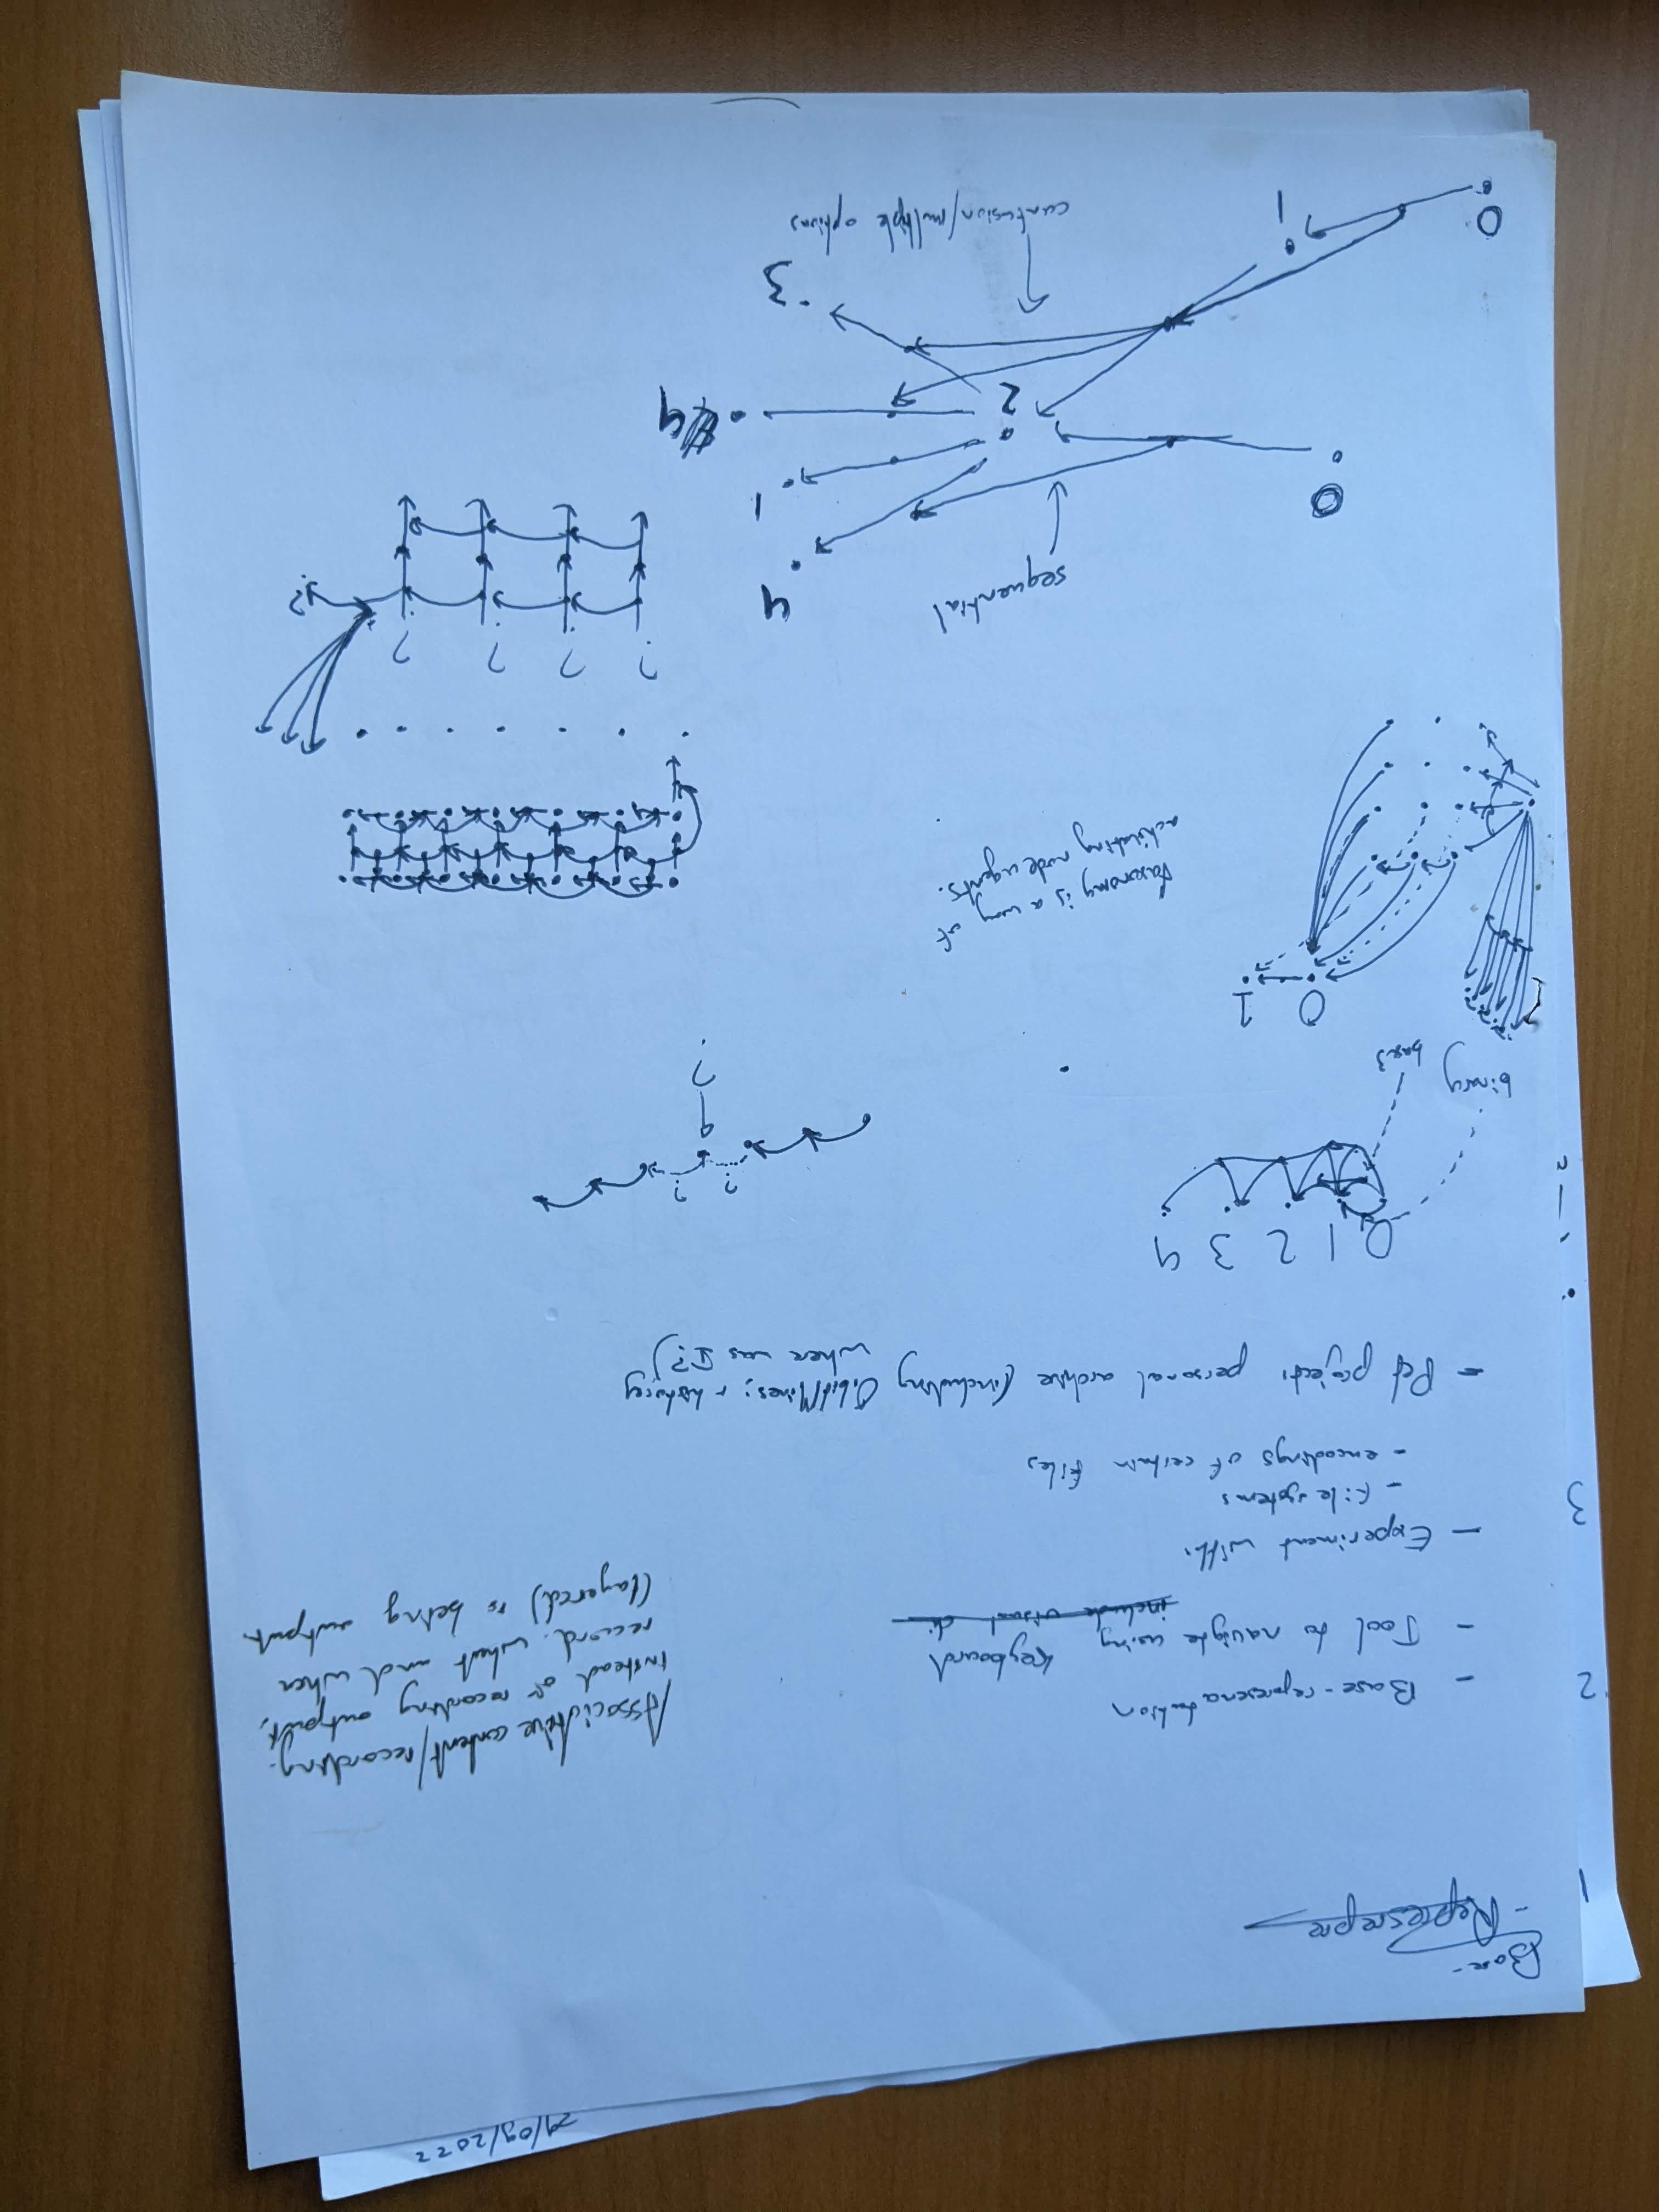 Base-
- Base-representation
- Tool to navigate using keyboard
include visual di
- Experiment with:
- file systems
- encodings of certain files
- Pet project: personal archive (including
: + history
where was I?)
Associative content/recording:
instead of recording output,
record: what and when
(layered) is being output.
1
2
3
0 1 2 3 4
binary
base 3
?
? ?
0 1
Taxonomy is a way of
activating node agents.
? ? ? ?
?
sequential
4
0
1
2
4
3
confusion/multiple options
1
0
/09/2022